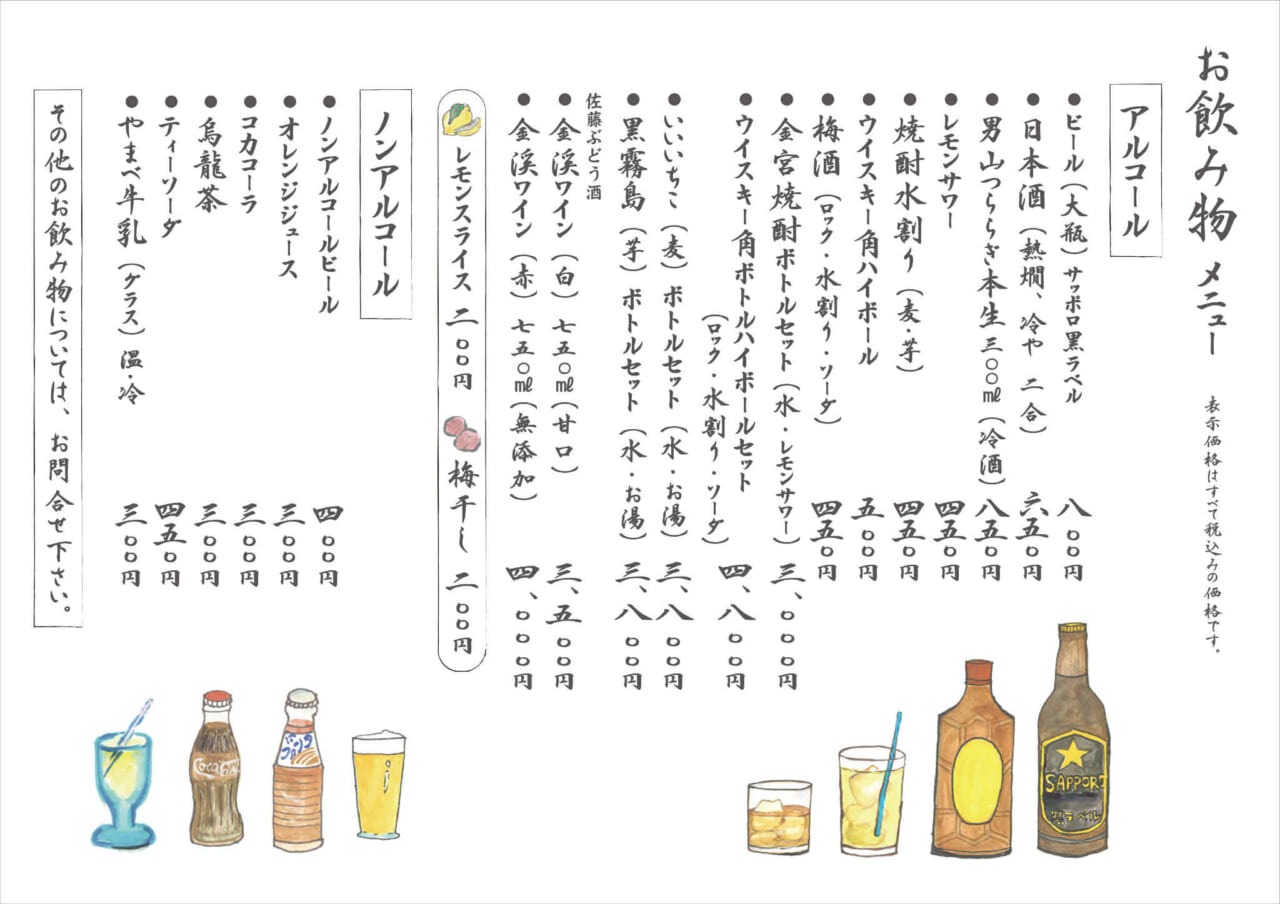 お飲み物 メニュー
表示価格はすべて税込みの価格です。
アルコール
●ビール（大瓶）サッポロ黒ラベル 八〇〇円
●日本酒（熱燗、冷や 二合） 六五〇円
●男山つららぎ本生 三〇〇㎖（冷酒） 八五〇円
●レモンサワー 四五〇円
●焼酎水割り（麦・芋） 四五〇円
●ウイスキー角ハイボール 五〇〇円
●梅酒（ロック・水割り・ソーダ） 四五〇円
●金宮焼酎ボトルセット（水・レモンサワー） 三、〇〇〇円
●ウイスキー角ボトルハイボールセット
（ロック・水割り・ソーダ） 四、八〇〇円
●いいいちこ（麦）ボトルセット（水・お湯） 三、八〇〇円
●黒霧島（芋）ボトルセット（水・お湯） 三、八〇〇円
佐藤ぶどう酒
●金渓ワイン（白）七五〇㎖（甘口） 三、五〇〇円
●金渓ワイン（赤）七五〇㎖（無添加） 四、〇〇〇円
レモンスライス 二〇〇円 梅干し 二〇〇円
ノンアルコール
●ノンアルコールビール 四〇〇円
●オレンジジュース 三〇〇円
●コカコーラ 三〇〇円
●烏龍茶 三〇〇円
●ティーソーダ 四五〇円
●やまべ牛乳（グラス）温・冷 三〇〇円
その他のお飲み物については、お問合せ下さい。
SAPPORO
黒ラベル
Coca